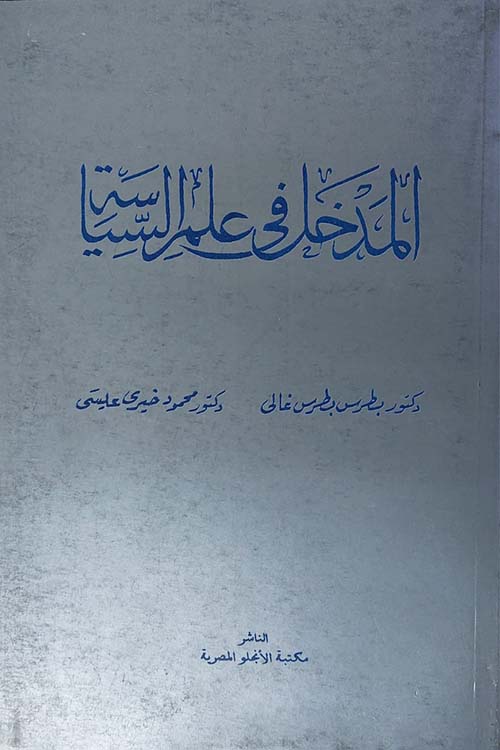 المَدْخَل في علم السِّيَاسَة
دكتور بطرس بطرس غالى دكتور محمود خيرى عيسى
الناشر
مكتبة الأنجلو المصرية